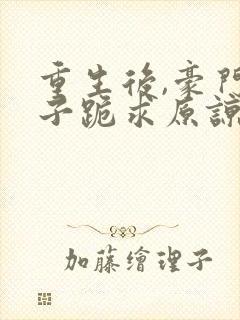 重生後,豪門
子跪求原諒
加藤繪理子